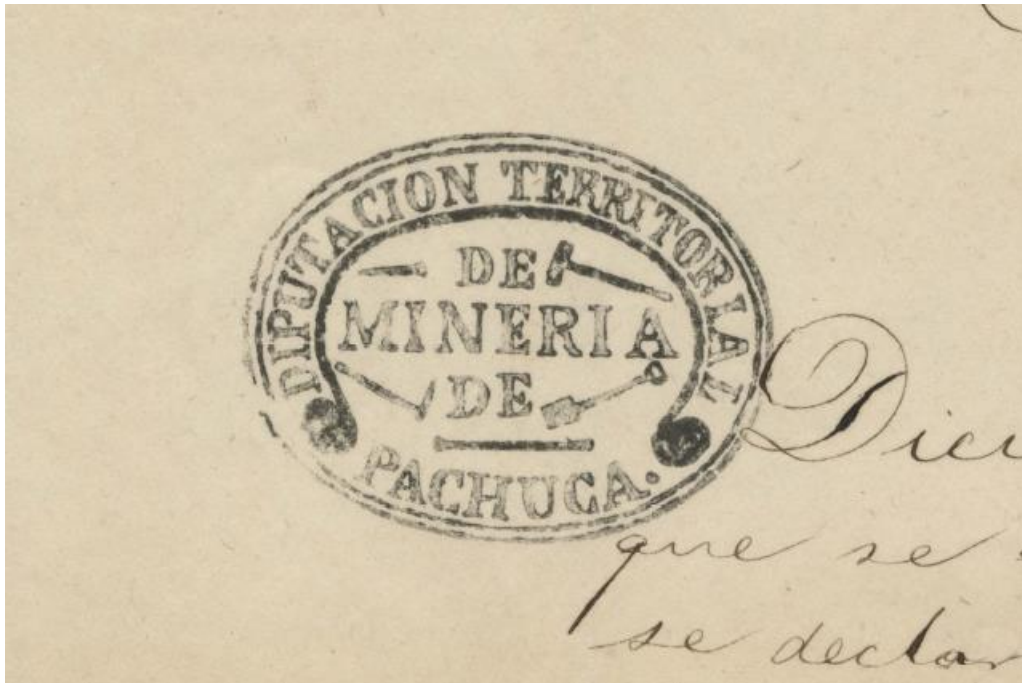 DIPUTACION TERRITORIAL
DE
MINERIA
DE
PACHUCA.
que se
se declar